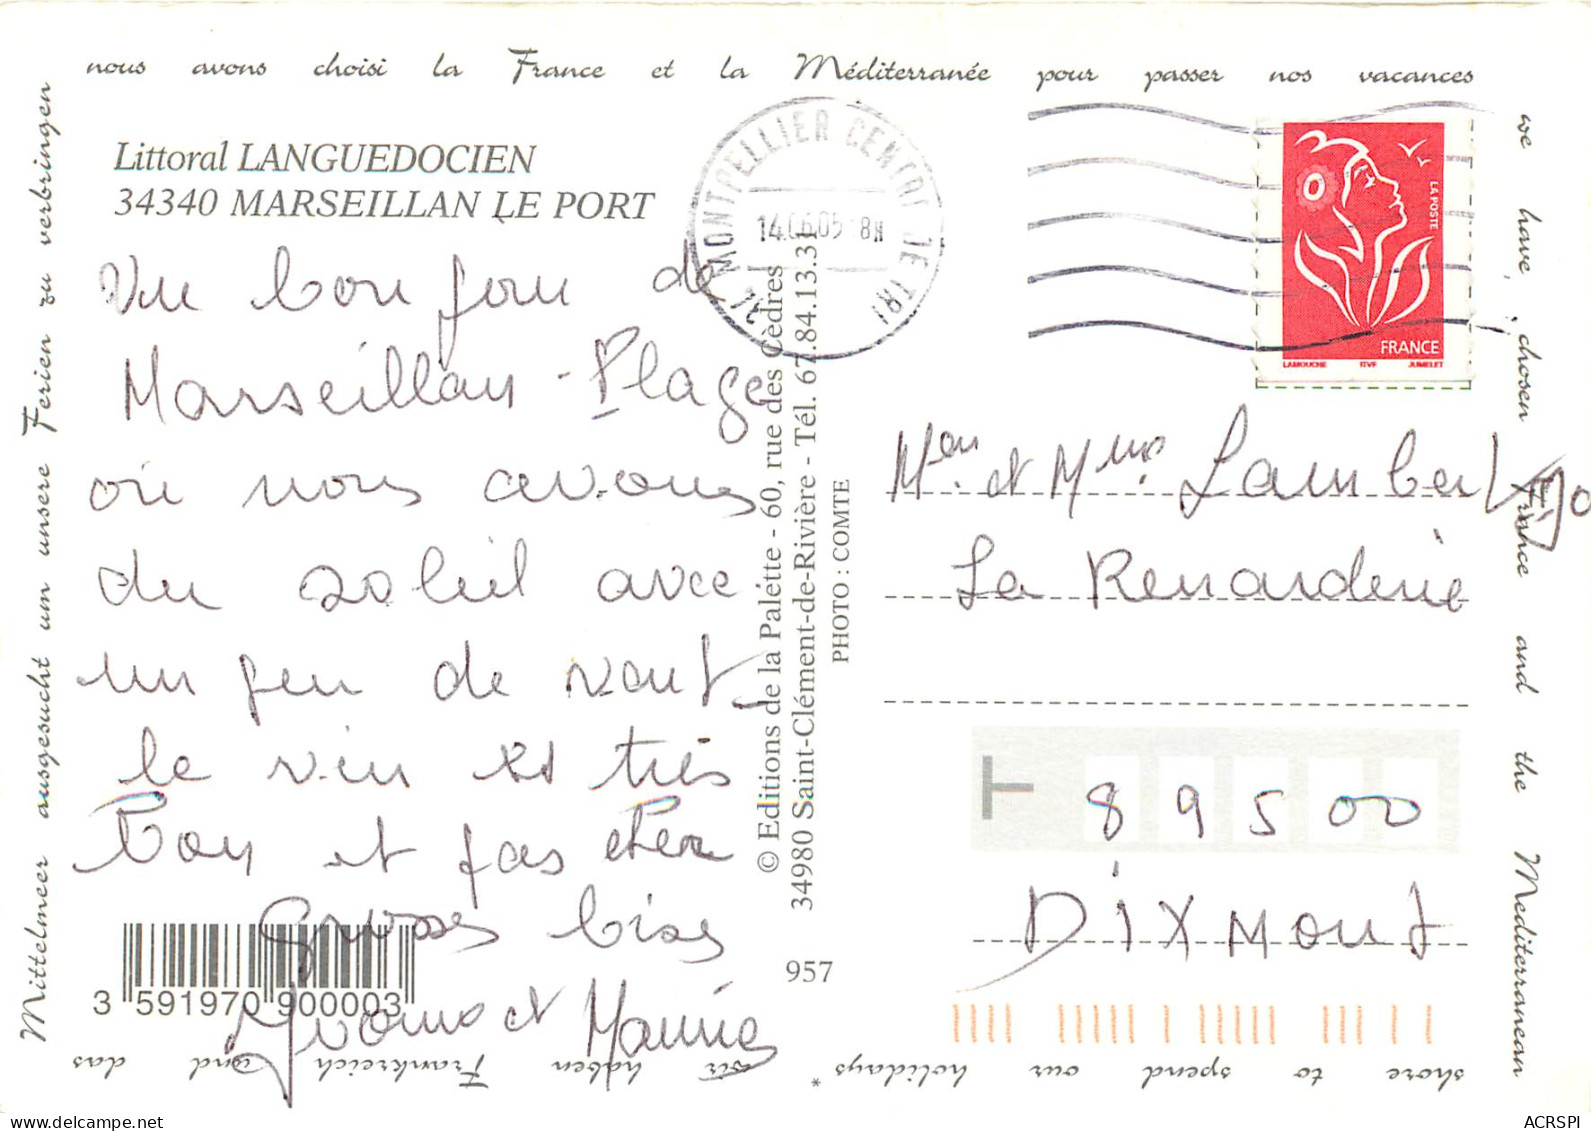 nous avons choisi la France et la Méditerranée pour passer nos vacances
we have chosen France and the Mediterranean
shore to spend our holidays *
wir haben Frankreich und das
Mittelmeer ausgesucht um unsere Ferien zu verbringen
Littoral LANGUEDOCIEN
34340 MARSEILLAN LE PORT
Un bon jour de
Marseillan-Plage
où nous avons
du soleil avec
un peu de vent
le vin est très
bon et pas cher
Grosses bises
Yvonne et Maurice
3 591970 900003
© Editions de la Palette - 60, rue des Cèdres
34980 Saint-Clément-de-Rivière - Tél. 67.84.13.31
PHOTO : COMTE
957
MONTPELLIER CENTRE DE TRI
14.06.05 8H
LA POSTE
FRANCE
LAMOUCHE ITVF JUMELET
Mon. et Mme. Lambert
La Renarderie
89500
DIXMONT
ACRSPI